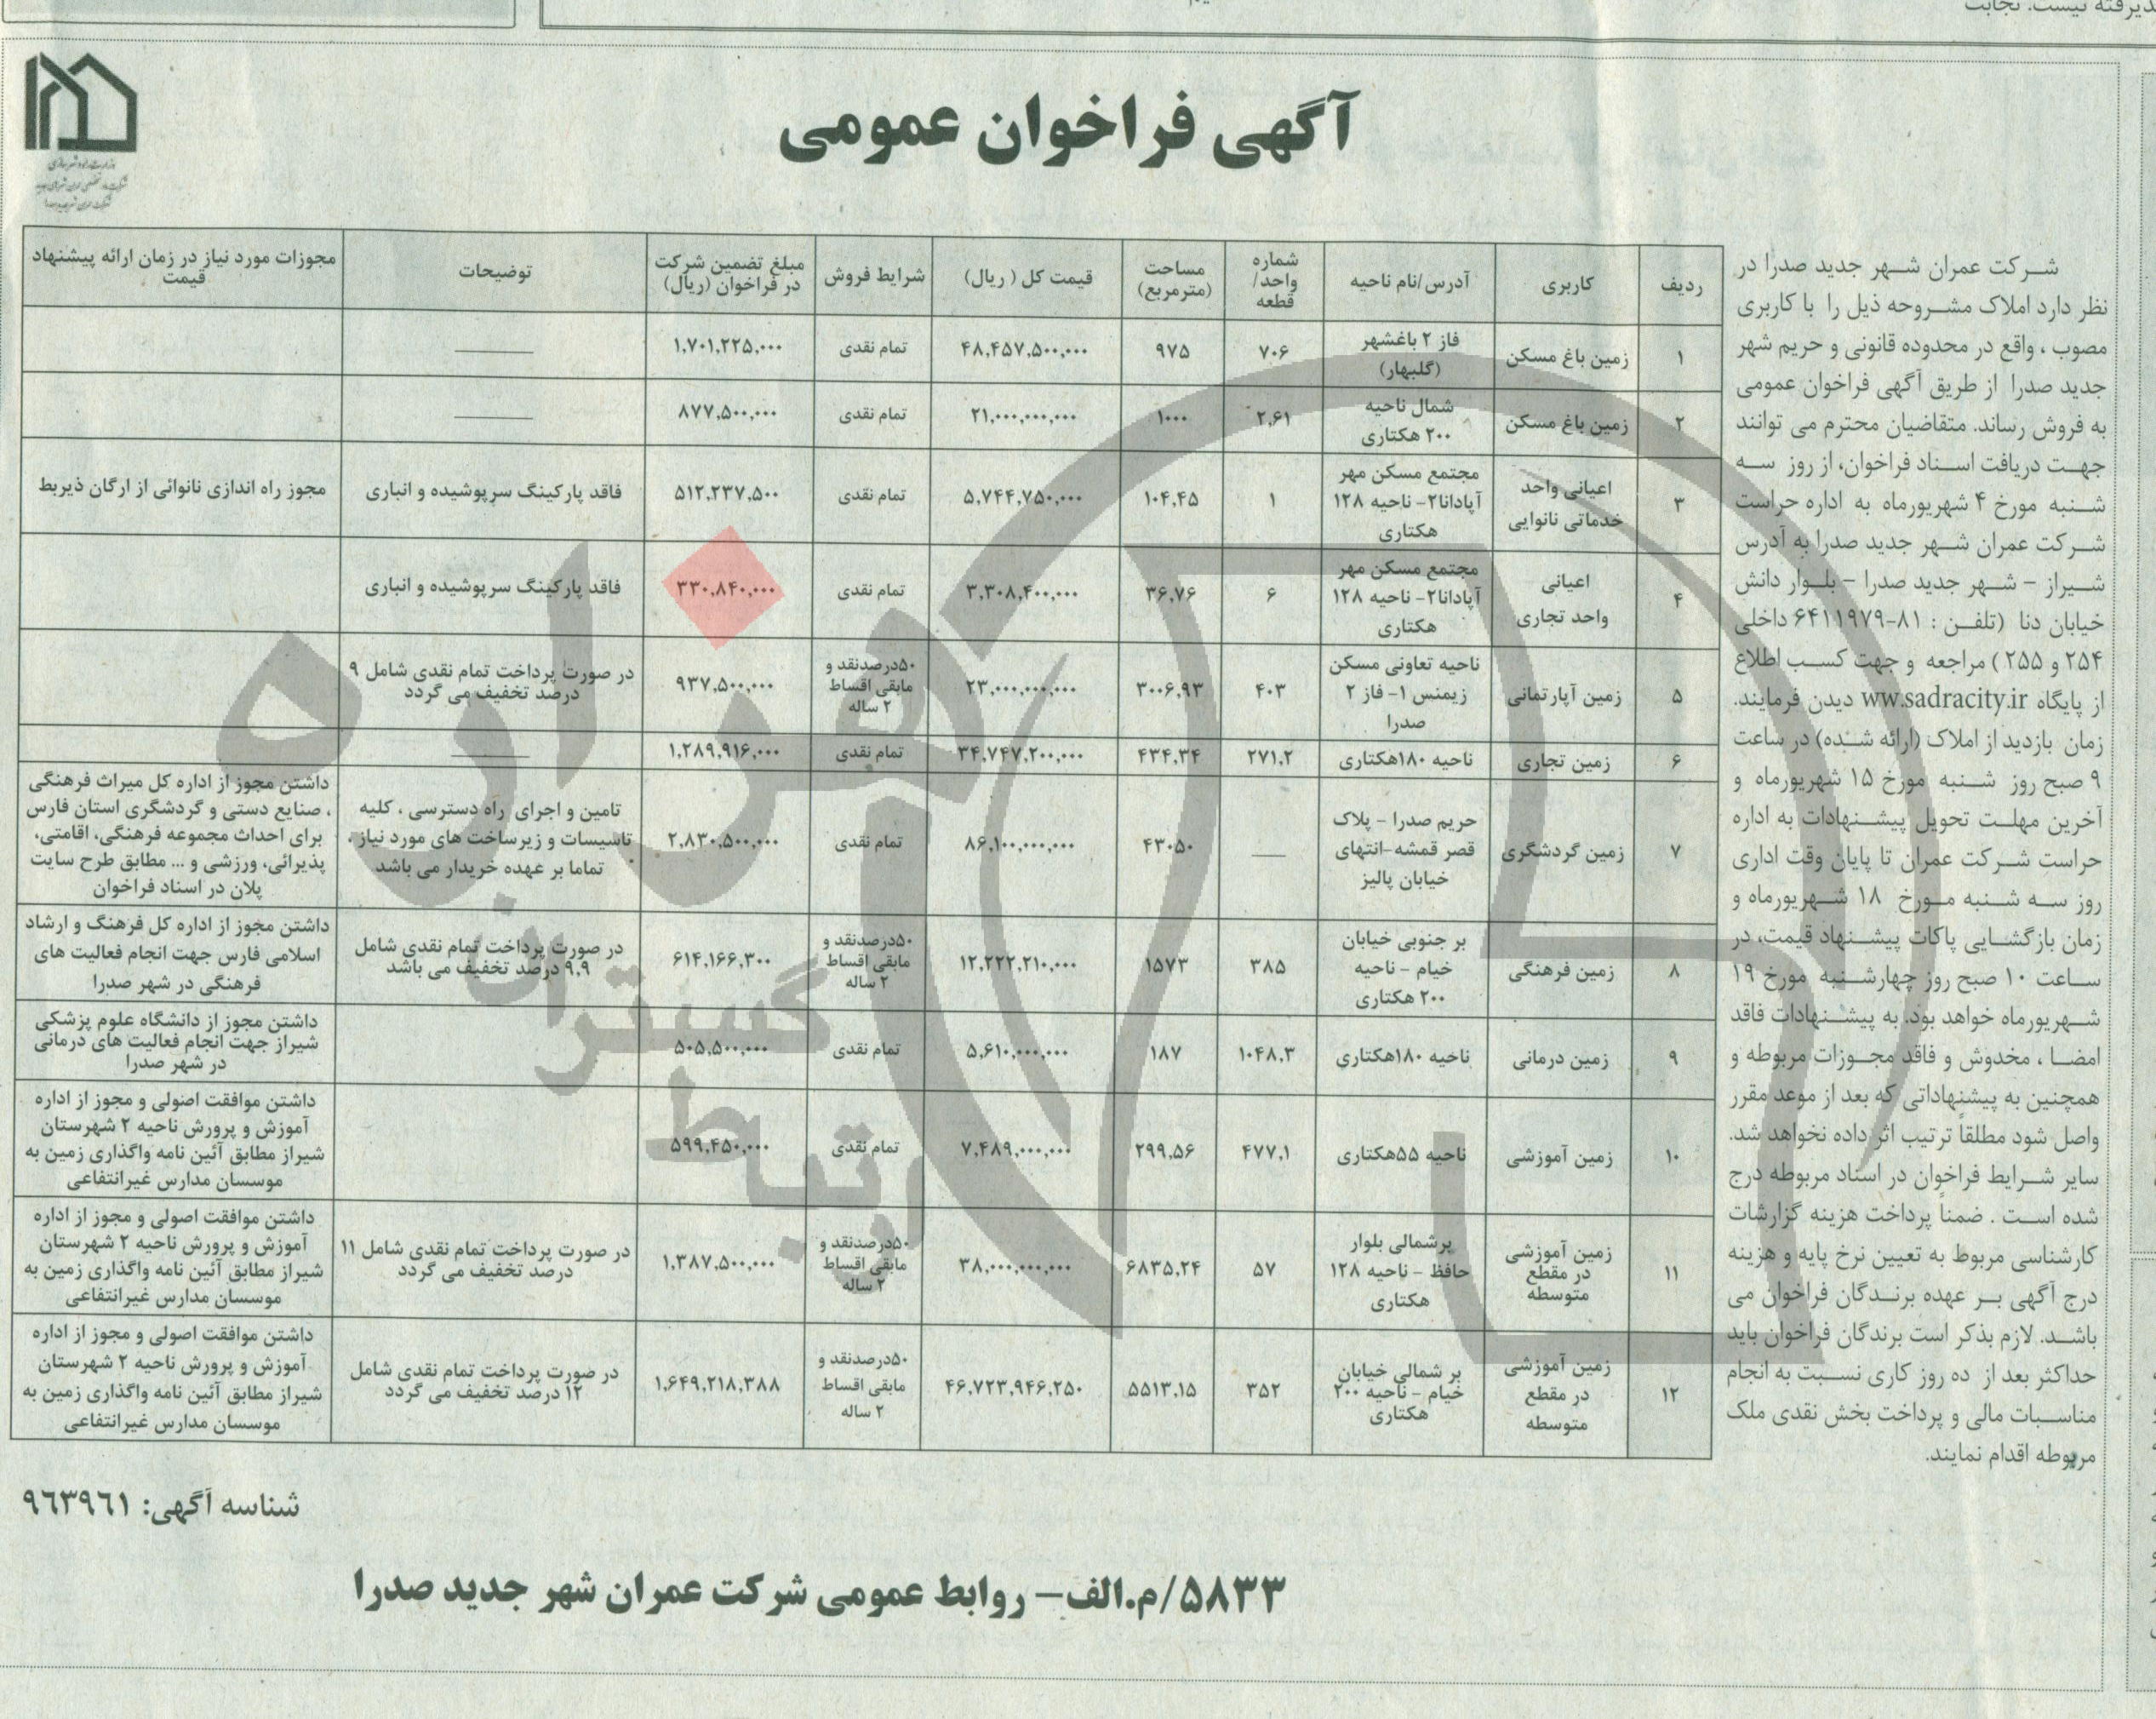 آگهی فراخوان عمومی
شرکت عمران شهر جدید صدرا در
نظر دارد املاک مشروحه ذیل را با کاربری
مصوب ، واقع در محدوده قانونی و حریم شهر
جدید صدرا از طریق آگهی فراخوان عمومی
به فروش رساند. متقاضیان محترم می توانند
جهت دریافت اسناد فراخوان، از روز سه
شنبه مورخ ۴ شهریورماه به اداره حراست
شرکت عمران شهر جدید صدرا به آدرس
شیراز – شهر جدید صدرا – بلوار دانش
خیابان دنا (تلفن : ۸۱-۶۴۱۱۹۷۹ داخلی
۲۵۴ و ۲۵۵ ) مراجعه و جهت کسب اطلاع
از پایگاه ww.sadracity.ir دیدن فرمایند.
زمان بازدید از املاک (ارائه شده) در ساعت
۹ صبح روز شنبه مورخ ۱۵ شهریورماه و
آخرین مهلت تحویل پیشنهادات به اداره
حراست شرکت عمران تا پایان وقت اداری
روز سه شنبه مورخ ۱۸ شهریورماه و
زمان بازگشایی پاکات پیشنهاد قیمت، در
ساعت ۱۰ صبح روز چهارشنبه مورخ ۱۹
شهریورماه خواهد بود. به پیشنهادات فاقد
امضا ، مخدوش و فاقد مجوزات مربوطه و
همچنین به پیشنهاداتی که بعد از موعد مقرر
واصل شود مطلقاً ترتیب اثر داده نخواهد شد.
سایر شرایط فراخوان در اسناد مربوطه درج
شده است . ضمناً پرداخت هزینه گزارشات
کارشناسی مربوط به تعیین نرخ پایه و هزینه
درج آگهی بر عهده برندگان فراخوان می
باشد. لازم بذکر است برندگان فراخوان باید
حداکثر بعد از ده روز کاری نسبت به انجام
مناسبات مالی و پرداخت بخش نقدی ملک
مربوطه اقدام نمایند.
ردیف کاربری آدرس/نام ناحیه شماره واحد/ قطعه مساحت (مترمربع) قیمت کل ( ریال) شرایط فروش مبلغ تضمین شرکت در فراخوان (ریال) توضیحات مجوزات مورد نیاز در زمان ارائه پیشنهاد قیمت
۱ زمین باغ مسکن فاز ۲ باغشهر (گلبهار) ۷۰۶ ۹۷۵ ۴۸,۴۵۷,۵۰۰,۰۰۰ تمام نقدی ۱,۷۰۱,۲۲۵,۰۰۰ ——
۲ زمین باغ مسکن شمال ناحیه ۲۰۰ هکتاری ۲,۶۱ ۱۰۰۰ ۲۱,۰۰۰,۰۰۰,۰۰۰ تمام نقدی ۸۷۷,۵۰۰,۰۰۰ ——
۳ اعیانی واحد خدماتی نانوایی مجتمع مسکن مهر آپادانا۲- ناحیه ۱۲۸ هکتاری ۱ ۱۰۴,۴۵ ۵,۷۴۴,۷۵۰,۰۰۰ تمام نقدی ۵۱۲,۲۳۷,۵۰۰ فاقد پارکینگ سرپوشیده و انباری مجوز راه اندازی نانوائی از ارگان ذیربط
۴ اعیانی واحد تجاری مجتمع مسکن مهر آپادانا۲- ناحیه ۱۲۸ هکتاری ۶ ۳۶,۷۶ ۳,۳۰۸,۴۰۰,۰۰۰ تمام نقدی ۳۳۰,۸۴۰,۰۰۰ فاقد پارکینگ سرپوشیده و انباری
۵ زمین آپارتمانی ناحیه تعاونی مسکن زیمنس ۱- فاز ۲ صدرا ۴۰۳ ۳۰۰۶,۹۳ ۲۳,۰۰۰,۰۰۰,۰۰۰ ۵۰درصدنقد و مابقی اقساط ۲ ساله ۹۳۷,۵۰۰,۰۰۰ در صورت پرداخت تمام نقدی شامل ۹ درصد تخفیف می گردد
۶ زمین تجاری ناحیه ۱۸۰هکتاری ۲۷۱,۲ ۴۳۴,۳۴ ۳۴,۷۴۷,۲۰۰,۰۰۰ تمام نقدی ۱,۲۸۹,۹۱۶,۰۰۰ ——
۷ زمین گردشگری حریم صدرا - پلاک قصر قمشه-انتهای خیابان پالیز —— ۴۳۰۵۰ ۸۶,۱۰۰,۰۰۰,۰۰۰ تمام نقدی ۲,۸۳۰,۵۰۰,۰۰۰ تامین و اجرای راه دسترسی ، کلیه تاسیسات و زیرساخت های مورد نیاز ، تماما بر عهده خریدار می باشد داشتن مجوز از اداره کل میراث فرهنگی ، صنایع دستی و گردشگری استان فارس برای احداث مجموعه فرهنگی، اقامتی، پذیرائی، ورزشی و ... مطابق طرح سایت پلان در اسناد فراخوان
۸ زمین فرهنگی بر جنوبی خیابان خیام - ناحیه ۲۰۰ هکتاری ۳۸۵ ۱۵۷۳ ۱۲,۲۲۲,۲۱۰,۰۰۰ ۵۰درصدنقد و مابقی اقساط ۲ ساله ۶۱۴,۱۶۶,۳۰۰ در صورت پرداخت تمام نقدی شامل ۹,۹ درصد تخفیف می باشد داشتن مجوز از اداره کل فرهنگ و ارشاد اسلامی فارس جهت انجام فعالیت های فرهنگی در شهر صدرا
۹ زمین درمانی ناحیه ۱۸۰هکتاری ۱۰۴۸,۳ ۱۸۷ ۵,۶۱۰,۰۰۰,۰۰۰ تمام نقدی ۵۰۵,۵۰۰,۰۰۰ داشتن مجوز از دانشگاه علوم پزشکی شیراز جهت انجام فعالیت های درمانی در شهر صدرا
۱۰ زمین آموزشی ناحیه ۵۵هکتاری ۴۷۷,۱ ۲۹۹,۵۶ ۷,۴۸۹,۰۰۰,۰۰۰ تمام نقدی ۵۹۹,۴۵۰,۰۰۰ داشتن موافقت اصولی و مجوز از اداره آموزش و پرورش ناحیه ۲ شهرستان شیراز مطابق آئین نامه واگذاری زمین به موسسان مدارس غیرانتفاعی
۱۱ زمین آموزشی در مقطع متوسطه پرشمالی بلوار حافظ - ناحیه ۱۲۸ هکتاری ۵۷ ۶۸۳۵,۲۴ ۳۸,۰۰۰,۰۰۰,۰۰۰ ۵۰درصدنقد و مابقی اقساط ۲ ساله ۱,۳۸۷,۵۰۰,۰۰۰ در صورت پرداخت تمام نقدی شامل ۱۱ درصد تخفیف می گردد داشتن موافقت اصولی و مجوز از اداره آموزش و پرورش ناحیه ۲ شهرستان شیراز مطابق آئین نامه واگذاری زمین به موسسان مدارس غیرانتفاعی
۱۲ زمین آموزشی در مقطع متوسطه بر شمالی خیابان خیام - ناحیه ۲۰۰ هکتاری ۳۵۲ ۵۵۱۳,۱۵ ۴۶,۷۲۳,۹۴۶,۲۵۰ ۵۰درصدنقد و مابقی اقساط ۲ ساله ۱,۶۴۹,۲۱۸,۳۸۸ در صورت پرداخت تمام نقدی شامل ۱۲ درصد تخفیف می گردد داشتن موافقت اصولی و مجوز از اداره آموزش و پرورش ناحیه ۲ شهرستان شیراز مطابق آئین نامه واگذاری زمین به موسسان مدارس غیرانتفاعی
شناسه آگهی: ۹۶۳۹۶۱
۵۸۳۳/م.الف– روابط عمومی شرکت عمران شهر جدید صدرا
هزاره
گستران
رتبط